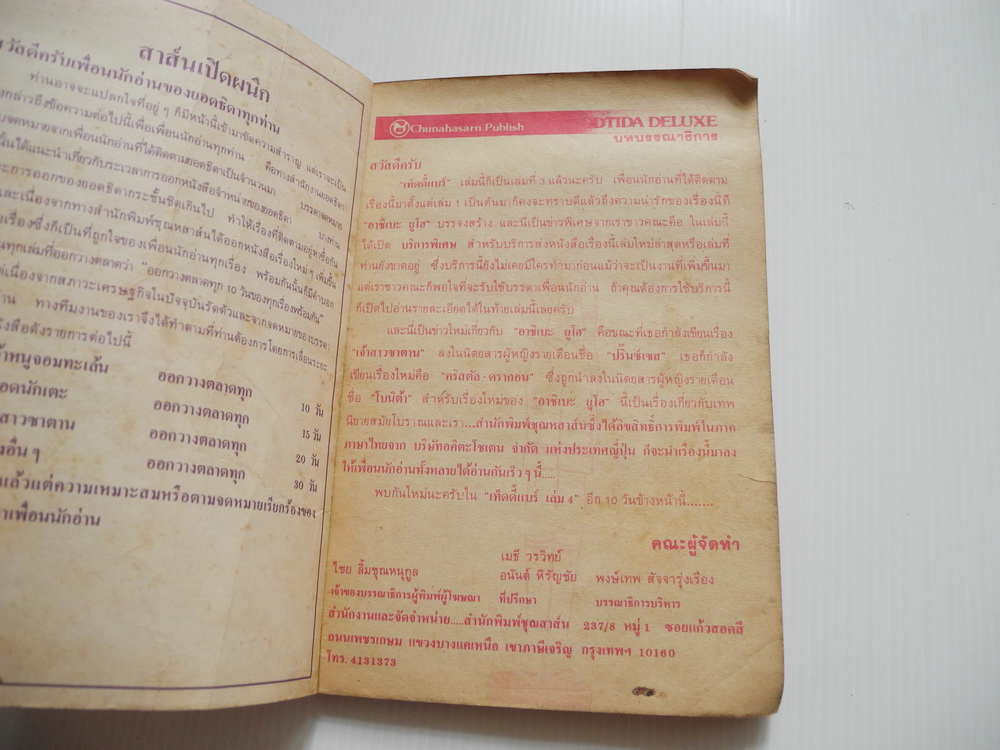 สาส์นเปิดผนึก
วัสดีครับเพื่อนนักอ่านของยอดธิดาทุกท่าน
ท่านอาจจะแปลกใจที่อยู่ ๆ ก็มีหน้านี้เข้ามาขัดความสำราญ แต่เราจะเป็น
งกล่าวถึงข้อความต่อไปนี้เพื่อเพื่อนนักอ่านทุกท่าน คือทางสำนักงานยอดธิดา
บจดหมายจากเพื่อนนักอ่านที่ได้ติดตามยอดธิดาเป็นจำนวนมา บรรดาจดหมาย
นั้นได้แนะนำเกี่ยวกับระยะเวลาการออกหนังสือจำหน่ายของยอดธิดา บางท่าน
ะการออกของยอดธิดากระชั้นชิดเกินไป ทำให้เรื่องที่ติดตามอยู่หาซื้อกัน
และเนื่องจากทางสำนักพิมพ์ชุณหสาส์นได้ออกหนังสือเรื่องใหม่ๆ เพิ่มขึ้น
เรื่องซึ่งก็เป็นที่ถูกใจของเพื่อนนักอ่านทุกเรื่อง พร้อมกันนั้นก็มีคำบอก
ทุกเล่มที่ออกวางตลาดว่า "ออกวางตลาดทุก 10 วันของทุกเรื่องพร้อมกัน"
ต่เนื่องจากสภาวะเศรษฐกิจในปัจจุบันรัดตัวและจากจดหมายของบรรดา
่าน ทางทีมงานของเราจึงได้ทำตามที่ท่านต้องการโดยการเลื่อนระยะ
ังสือดังรายการต่อไปนี้
้าหนูจอมทะเล้น ออกวางตลาดทุก 10 วัน
อดนักเตะ ออกวางตลาดทุก 15 วัน
สาวซาตาน ออกวางตลาดทุก 20 วัน
งอื่น ๆ ออกวางตลาดทุก 30 วัน
แล้วแต่ความเหมาะสมหรือตามจดหมายเรียกร้องของ
าเพื่อนนักอ่าน
Chunahasarn Publish ODTIDA DELUXE
บทบรรณาธิการ
สวัสดีครับ
"เท็ดดี้แบร์" เล่มนี้ก็เป็นเล่มที่ 3 แล้วนะครับ เพื่อนนักอ่านที่ได้ติดตาม
เรื่องนี้มาตั้งแต่เล่ม 1 เป็นต้นมาก็คงจะทราบดีแล้วถึงความน่ารักของเรื่องนี้ที่
"อาชิเบะ ยูโฮ" บรรจงสร้าง และนี่เป็นข่าวพิเศษจากเราชาวคณะคือ ในเล่มนี้
ได้เปิด บริการพิเศษ สำหรับบริการส่งหนังสือเรื่องนี้เล่มใหม่ล่าสุดหรือเล่มที่
ท่านยังขาดอยู่ ซึ่งบริการนี้ยังไม่เคยมีใครทำมาก่อนแม้ว่าจะเป็นงานที่เพิ่มขึ้นมา
แต่เราชาวคณะก็พอใจที่จะรับใช้บรรดาเพื่อนนักอ่าน ถ้าคุณต้องการใช้บริการนี้
ก็เปิดไปอ่านรายละเอียดได้ในท้ายเล่มนี้เลยครับ
และนี่เป็นข่าวใหม่เกี่ยวกับ "อาชิเบะ ยูโฮ" คือขณะที่เธอกำลังเขียนเรื่อง
"เจ้าสาวซาตาน" ลงในนิตยสารผู้หญิงรายเดือนชื่อ "ปริ๊นซ์เซส" เธอก็กำลัง
เขียนเรื่องใหม่คือ "คริสตัล-ดรากอน" ซึ่งถูกนำลงในนิตยสารผู้หญิงรายเดือน
ชื่อ "โบนิต้า" สำหรับเรื่องใหม่ของ "อาชิเบะ ยูโฮ" นี้เป็นเรื่องเกี่ยวกับเทพ
นิยายสมัยโบราณและเรา...สำนักพิมพ์ชุณหสาส์นซึ่งได้ลิขสิทธิ์การพิมพ์ในภาค
ภาษาไทยจาก บริษัทอคิตะโชเตน จำกัด แห่งประเทศญี่ปุ่น ก็จะนำเรื่องนี้มาลง
ให้เพื่อนนักอ่านทั้งหลายได้อ่านกันเร็ว ๆ นี้.....
พบกันใหม่นะครับใน "เท็ดดี้แบร์ เล่ม 4" อีก 10 วันข้างหน้านี้.......
คณะผู้จัดทำ
เมธี วรวิทย์
ไชย ลิ้มชุณหนุกูล อนันต์ หิรัญชัย พงษ์เทพ สัจจารุ่งเรือง
เจ้าของบรรณาธิการผู้พิมพ์ผู้โฆษณา ที่ปรึกษา บรรณาธิการบริหาร
สำนักงานและจัดจำหน่าย.....สำนักพิมพ์ชุณสาส์น 237/8 หมู่ 1 ซอยแก้วสอดสี
ถนนเพชรเกษม แขวงบางแคเหนือ เขาภาษีเจริญ กรุงเทพฯ 10160
โทร. 4131373